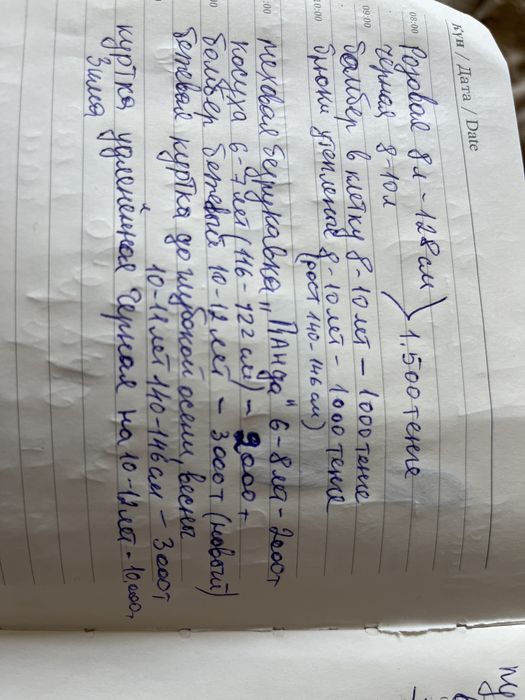 Күн / Дата / Date
08:00
Розовая 8л - 128см
черная 8-10л
1.500тенге
09:00
бомбер в клетку 8-10 лет - 1000тенге
брюки утепленные 8-10лет - 1000 тенге
10:00
(рост 140-146 см)
меховая безрукавка "Панда" 6-8лет - 2000т
косуха 6-7лет (116-122 см) - 2000т
бомбер бежевый 10-12 лет - 3000т (новый)
бежевая куртка до глубокой осени, весны
10-11 лет 140-146см - 3000т
куртка удлинённая черная на 10-12лет - 10000т
Зима